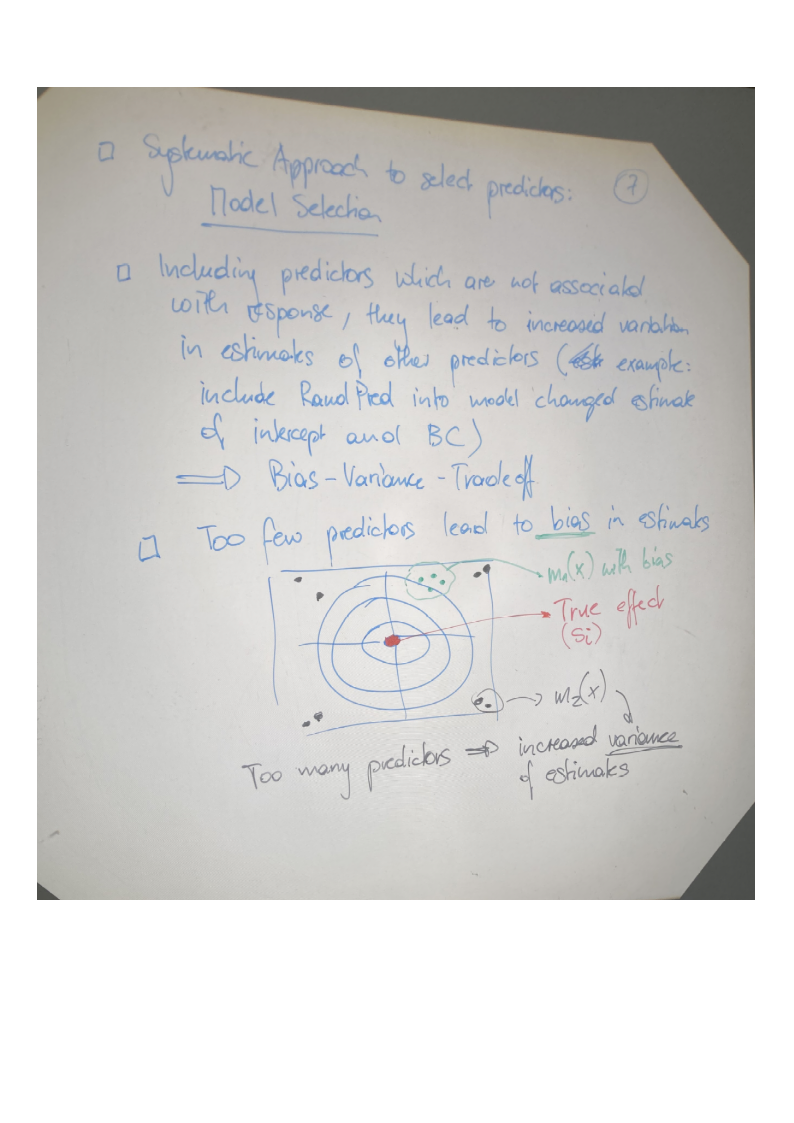 □ Systematic Approach to select predictors: 7
Model Selection
□ Including predictors which are not associated
with response, they lead to increased variation
in estimates of other predictors ( example:
include RandPred into model changed estimate
of intercept and BC)
⟹ Bias-Variance-Tradeoff
□ Too few predictors lead to bias in estimates
(x) with bias
True effect
(Si)
m₂(x)
Too many predictors ⟹ increased variance
of estimates